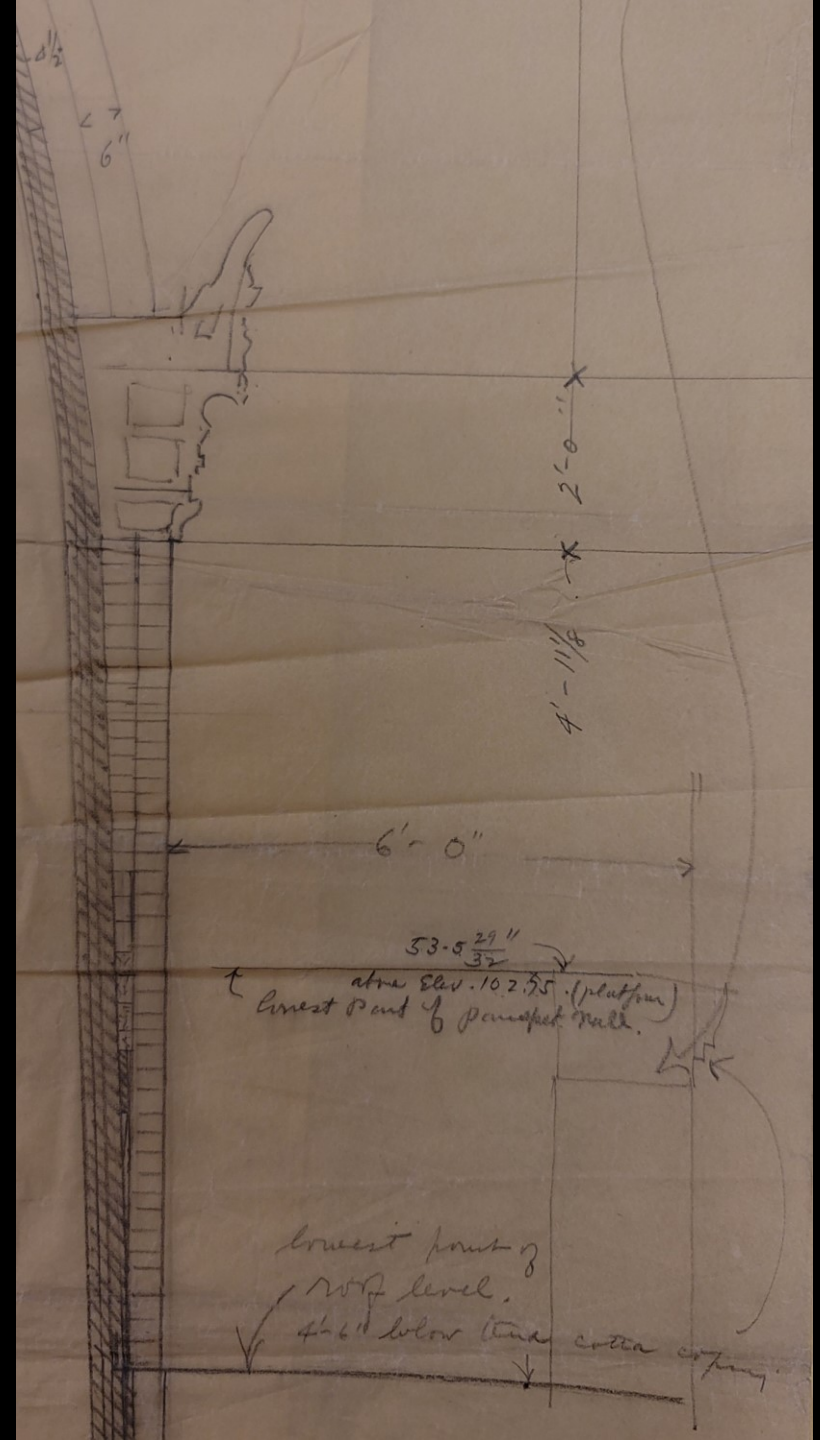 4½
6"
2'-0"
4'-11⅛
6'-0"
53-5 29/32"
above Elev. 102.55 (platform)
lowest Part of parapet wall.
lowest point of
roof level.
4'-6" below terra cotta coping